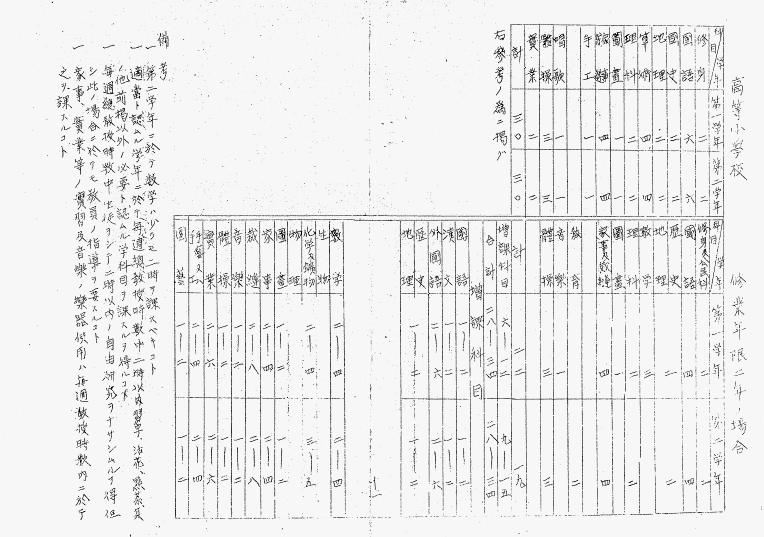 高等小学校
科目/学年 第一学年 第二学年
修身 二 二
國語 六 六
國史 二 二
地理 二 二
算術 四 四
理科 二 二
圖畫 一 一
裁縫 四 四
手工 一 一
唱歌 一 一
體操 三 三
實業 二 二
計 三〇 三〇
右参考ノ為ニ掲グ
修業年限二年ノ場合
科目/学年 第一学年 第二学年
修身及公民科 二 二
國語 四 四
歴史
地理
数学
理科
圖畫
家事及裁縫 四 四
教育
音樂
體操 三 三
計 二二 一九
増課科目 六―一二 九―一五
合計 二八―三四 二八―三四
増課科目
國語
漢文
外國語 二―六 二―六
歴史
地理
数学 二―四 二―四
生物
化学及鑛物 二―四 三―五
物理
圖畫 一―二 一―二
家事 二―四 二―四
裁縫 二―八 二―八
音樂 一―二 一―二
體操
實業 二―六 二―六
手藝又手工 二―四 二―四
園藝 一―二 一―二
備考
一 第二学年ニ於テ数学ハ少クモ二時ヲ課スベキコト
一 適當ト認ムル学年ニ於テ毎週總教授時数中二時以内習字、活花、點茶、其
ノ他前掲以外ノ必要ト認ムル学科目ヲ課スルヲ得ルコト
一 毎週總教授時数中生徒ヲシテ二時以内ノ自由研究ヲナサシムルヲ得但
シ此ノ場合ニ於テモ教員ノ指導ヲ要スルコト
一 家事、實業等ノ實習及音樂ノ樂器使用ハ毎週教授時数内ニ於テ
之ヲ課スルコト